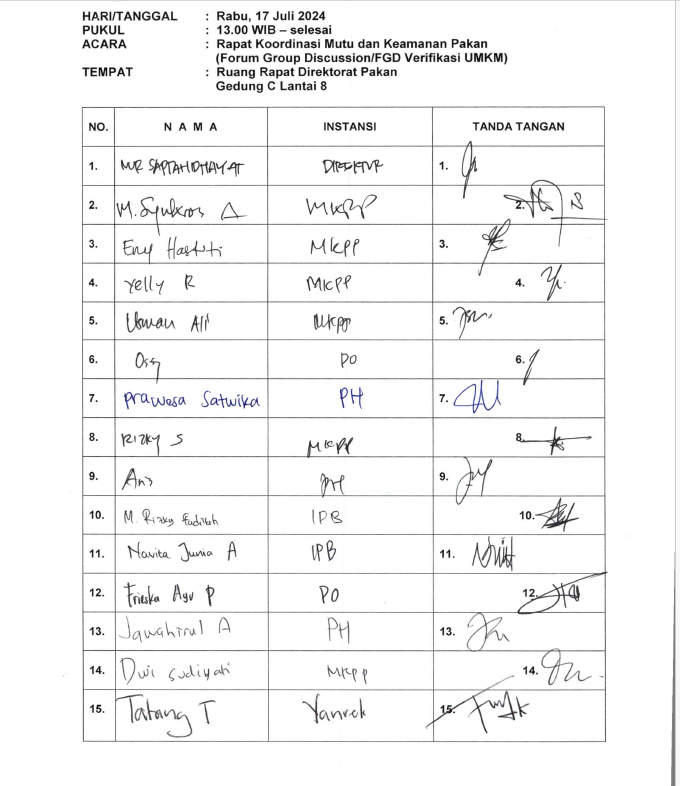 HARI/TANGGAL : Rabu, 17 Juli 2024
PUKUL : 13.00 WIB – selesai
ACARA : Rapat Koordinasi Mutu dan Keamanan Pakan
(Forum Group Discussion/FGD Verifikasi UMKM)
TEMPAT : Ruang Rapat Direktorat Pakan
Gedung C Lantai 8
NO. N A M A INSTANSI TANDA TANGAN
1. NUR SAPTAHIDHAYAT DIREKTUR 1.
2. M. Syukron A MKPP 2.
3. Eny Hastuti MKPP 3.
4. Yelly R MKPP 4.
5. Usman Ali MKPP 5.
6. Ossy PO 6.
7. Prawesa Satwika PH 7.
8. RIZKY S MKPP 8.
9. Anis 9.
10. M. Rizky Fadilah IPB 10.
11. Novita Junia A IPB 11.
12. Frieska Ayu P PO 12.
13. Jawahirul A PH 13.
14. Dwi Sudiyati MKPP 14.
15. Tatang T Yanrek 15.